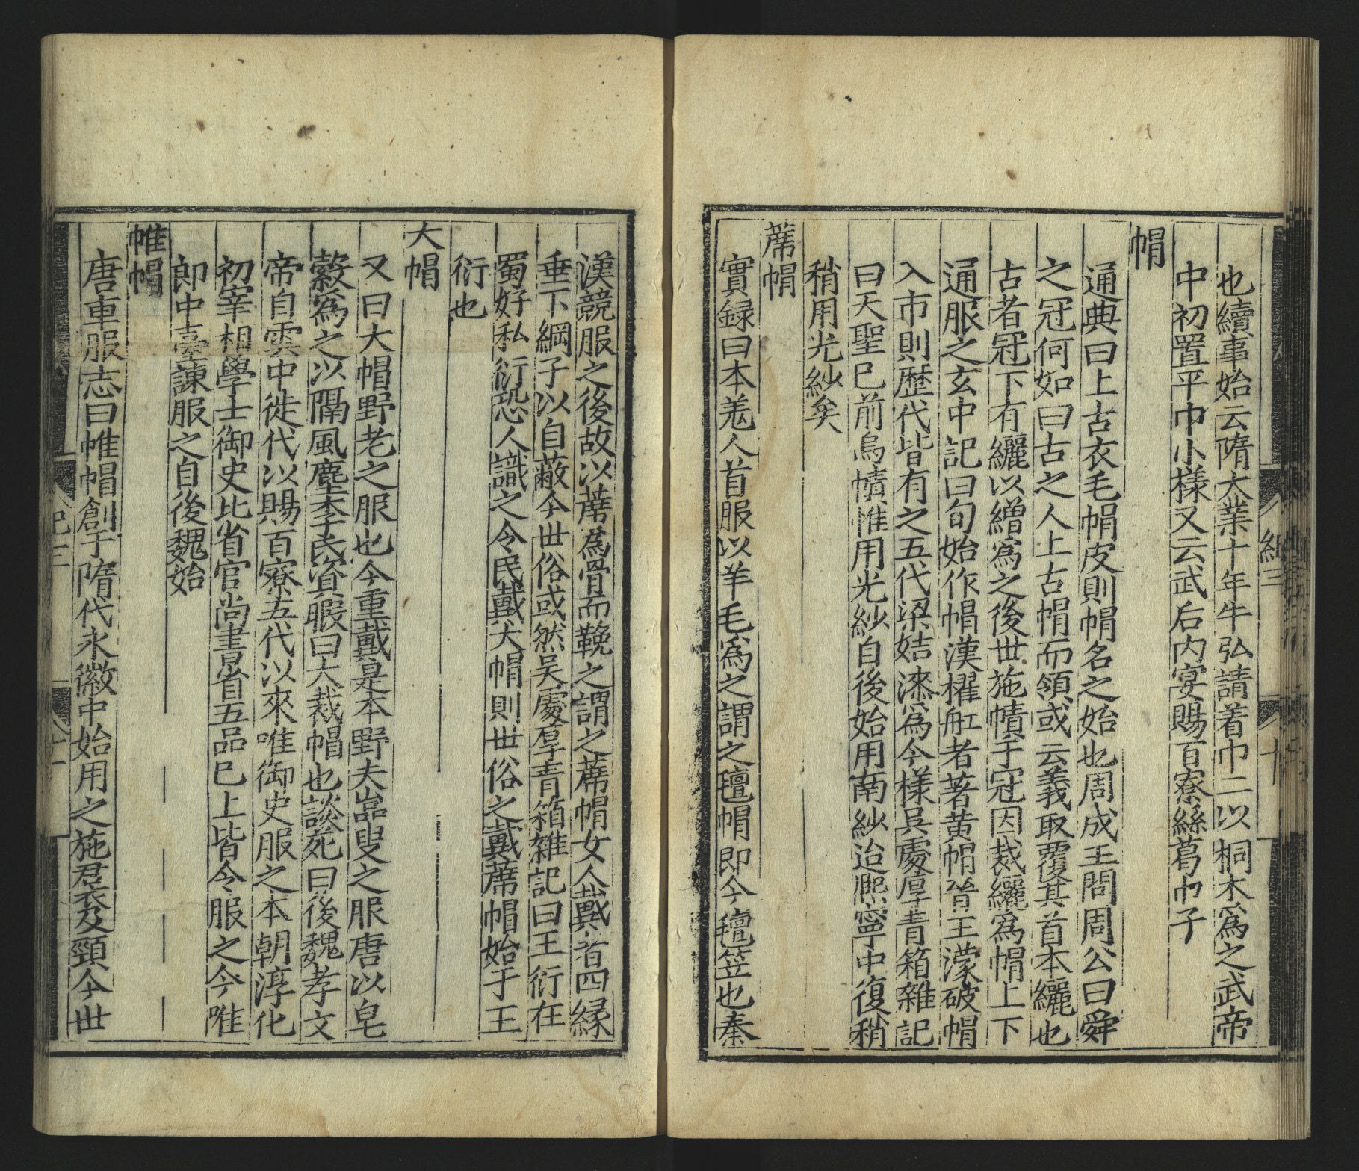 也續事始云隋大業十年牛弘請着巾二以桐木爲之武帝
中初置平巾小樣又云武后内宴賜百寮絲葛巾子
帽
通典曰上古衣毛帽皮則帽名之始也周成王問周公曰舜
之冠何如曰古之人上古帽而領或云義取覆其首本纚也
古者冠下有纚以繒爲之後世施幘于冠因裁纚爲帽上下
通服之玄中記曰旬始作帽漢櫂舡者著黄帽晉王濛破帽
入市則歷代皆有之五代梁始漆爲今樣吳處厚青箱雜記
曰天聖已前烏幘惟用光紗自後始用南紗迨熙寧中復稍
稍用光紗矣
蓆帽
實録曰本羌人首服以羊毛爲之謂之氊帽即今氊笠也秦
漢競服之後故以蓆爲骨而鞔之謂之蓆帽女人戴者四緣
垂下網子以自蔽今世俗或然吳處厚青箱雜記曰王衍在
蜀好私衍恐人識之令民戴大帽則世俗之戴蓆帽始于王
衍也
大帽
又曰大帽野老之服也今重戴是本野夫嵓叟之服唐以皂
縠爲之以隔風塵李氏資暇曰大裁帽也談苑曰後魏孝文
帝自雲中徙代以賜百寮五代以來唯御史服之本朝淳化
初宰相學士御史比省官尚書省五品已上皆令服之今唯
郎中臺諫服之自後魏始
帷帽
唐車服志曰帷帽創于隋代永徽中始用之施裙及頸今世
紀三
十
紀三
十一